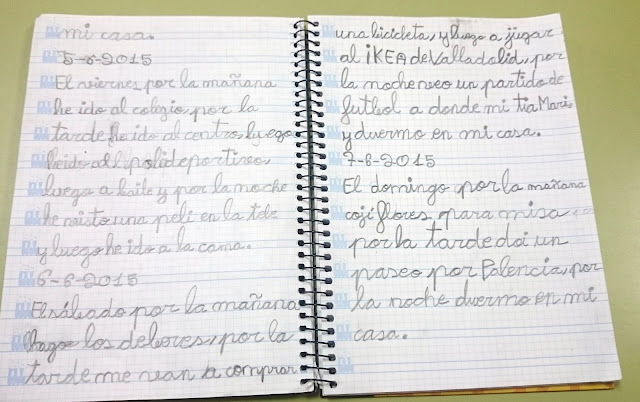 mi casa.
5-6-2015
El viernes por la mañana
he ido al colegio, por la
tarde he ido al centro, luego
he ido al polideportivo,
luego a baile y por la noche
he visto una peli en la tele
y luego he ido a la cama.
6-6-2015
El sábado por la mañana
hago los deberes, por la
tarde me vean a comprar
una bicicleta, y luego a jugar
al IKEA de Valladolid, por
la noche veo un partido de
futbol a donde mi tia Mari
y duermo en mi casa.
7-6-2015
El domingo por la mañana
cojí flores para misa,
por la tarde doi un
paseo por Palencia, por
la noche duermo en mi
casa.